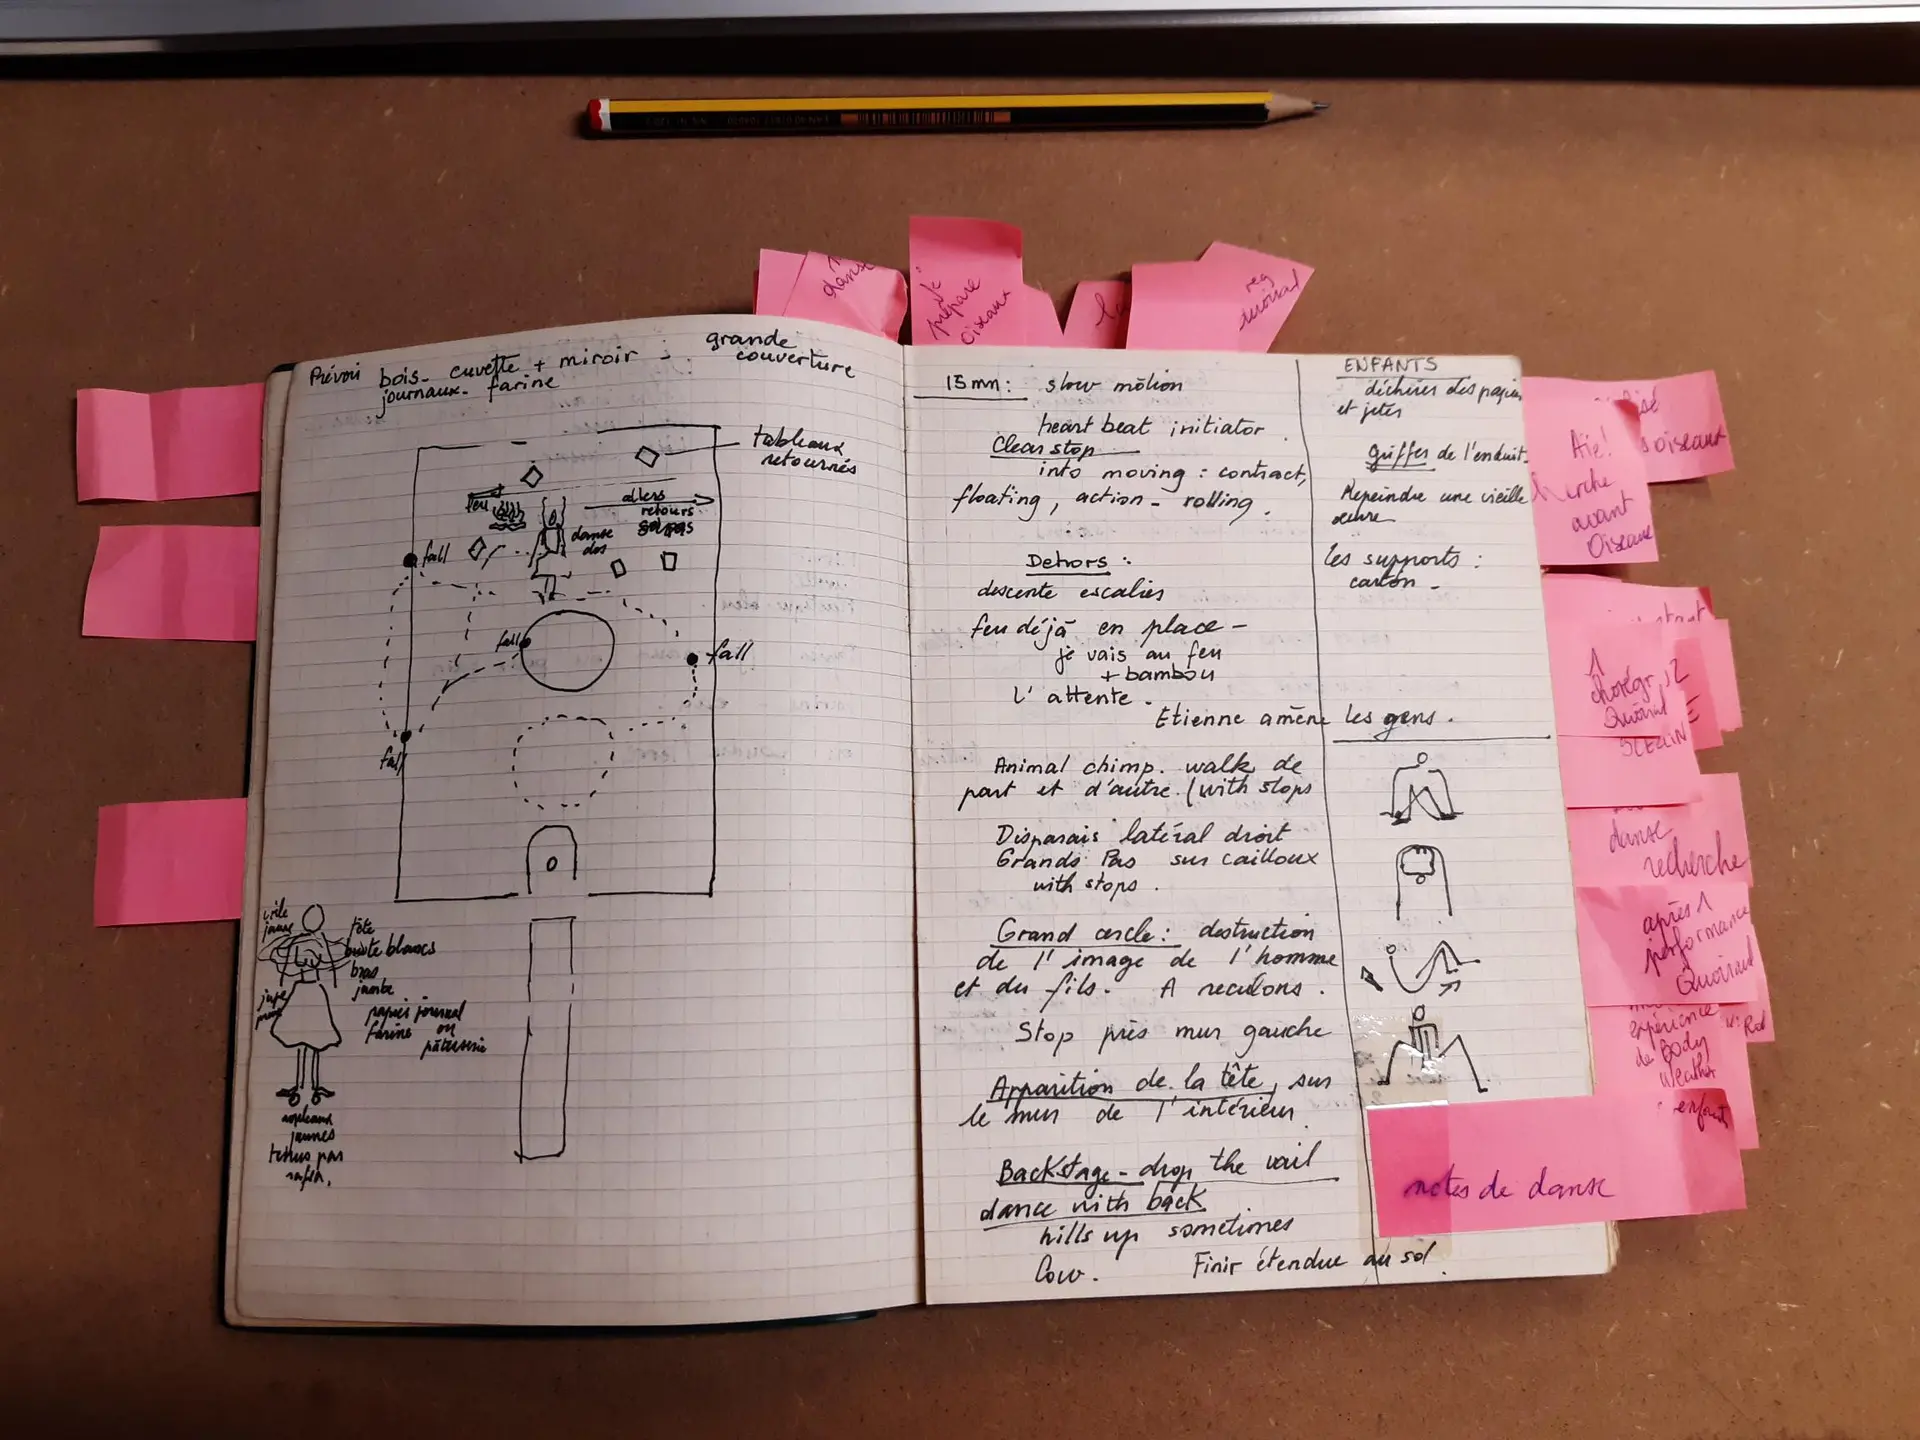 danse
je
prépare
oiseaux
Prévoir bois - cuvette + miroir ; grande
couverture
journaux - farine
tableaux
retournés
feu
allers
retours
danse
dos
fall
fall
fall
fall
jaune
tête
buste blancs
bras
jambe
jupe
papier journal
farine ou
pâtisserie
jaunes
tenus par
15 mn : slow motion
heart beat initiator
Clear stop
into moving : contract,
floating, action - rolling.
Dehors :
descente escaliers
feu déjà en place -
je vais au feu
+ bambou
l'attente.
Etienne amène les gens.
Animal chimp. walk de
part et d'autre. (with stops
Disparais latéral droit
Grands Pas sur cailloux
with stops.
Grand cercle : destruction
de l'image de l'homme
et du fils. A reculons.
Stop près mur gauche
Apparition de la tête, sur
le mur de l'intérieur
Backstage - drop the vail
dance with back
hills up sometimes
low. Finir étendue au sol.
ENFANTS
déchirer des papiers
et jeter
griffer de l'enduit.
Repeindre une vieille
les supports :
carton -
Aïe!
avant
Oiseaux
oiseaux
danse
recherche
après 1
performance
Quoiraud
expérience
de Body
Weather
enfants
notes de danse